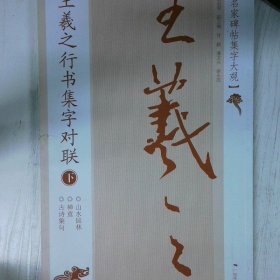 名家碑帖集字大观】
王羲之
王羲之行书集字对联 下
◎山水园林
◎禅意
◎古诗集句